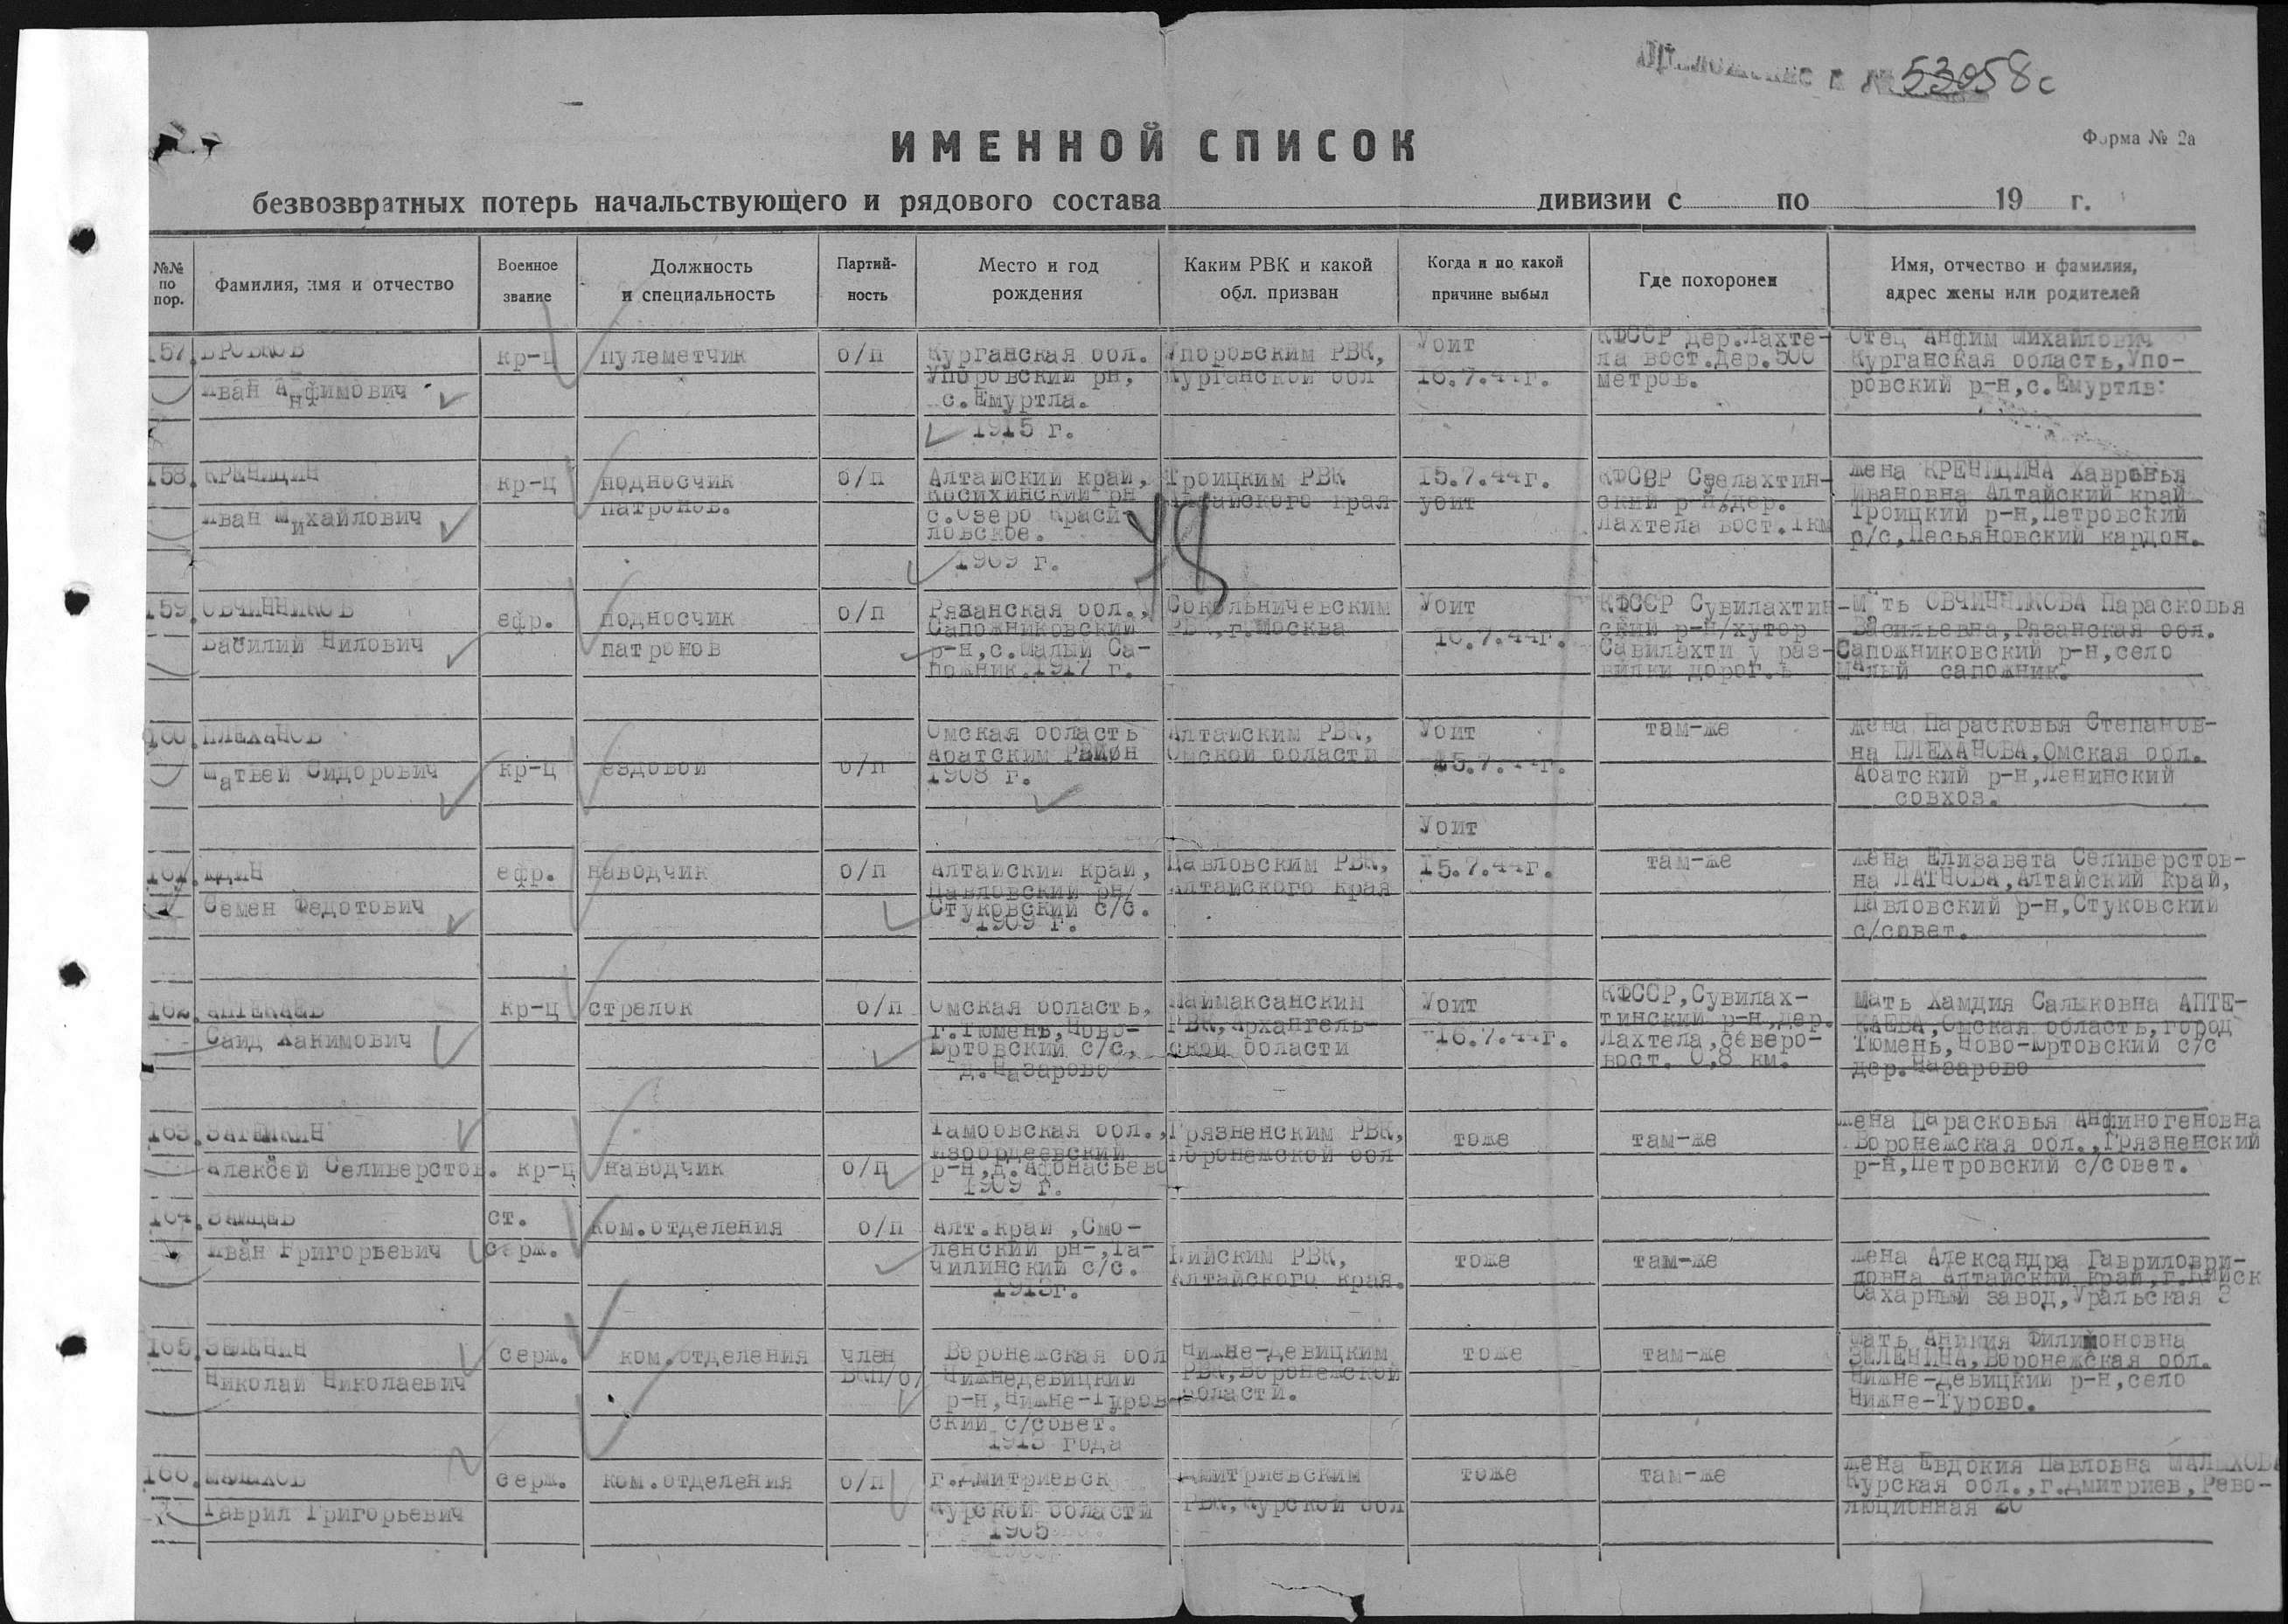 53058с
ИМЕННОЙ СПИСОК
Форма № 2а
безвозвратных потерь начальствующего и рядового состава дивизии с по 19 г.
№№ по пор.
Фамилия, имя и отчество
Военное звание
Должность и специальность
Партий-ность
Место и год рождения
Каким РВК и какой обл. призван
Когда и по какой причине выбыл
Где похоронен
Имя, отчество и фамилия, адрес жены или родителей
157.
Иван Анфимович
кр-ц
пулеметчик
о/п
Курганская обл.
Упоровский рн,
с.Емуртла.
1915 г.
Упоровским РВК,
Курганской обл
Убит
16.7.44г.
КФССР дер.Лахте-
ла вост.дер.500
метров.
Отец Анфим Михайлович
Курганская область,Упо-
ровский р-н,с.Емуртлв:
158.
КРЕНИЦИН
Иван Михайлович
кр-ц
подносчик
патронов.
о/п
Алтайский край,
Косихинский рн
с.Озеро Краси-
ловское.
1909 г.
Троицким РВК
Алтайского края
15.7.44г.
убит
КФССР Суелахтин-
ский р-н/дер.
Лахтела вост.1км
жена КРЕНИЦИНА Хавронья
Ивановна Алтайский край
Троицкий р-н,Петровский
р/с,Песьяновский кардон.
159.
ОВЧИННИКОВ
Василий Нилович
ефр.
подносчик
патронов
о/п
Рязанская обл.,
Сапожниковский
р-н,с.Малый Са-
пожник.1917 г.
Сокольничевским
РВК,г.Москва
Убит
16.7.44г.
КФССР Сувилахтин-
ский р-н/хутор
Савилахти у раз-
вилки дорог.
Мать ОВЧИННИКОВА Парасковья
Васильевна,Рязанская обл.
Сапожниковский р-н,село
Малый сапожник.
160.
ПЛЕХАНОВ
Матвей Сидорович
кр-ц
ездовой
о/п
Омская область
Абатским Район
1908 г.
Алтайским РВК,
Омской области
Убит
15.7.44г.
там-же
жена Парасковья Степанов-
на ПЛЕХАНОВА,Омская обл.
Абатский р-н,Ленинский
совхоз.
161.
Семен Федотович
ефр.
наводчик
о/п
Алтайский край,
Павловский рн/
Стуковский с/с.
1909 г.
Павловским РВК,
Алтайского края
Убит
15.7.44г.
там-же
жена Елизавета Селиверстов-
на ЛАТНОВА,Алтайский край,
Павловский р-н,Стуковский
с/совет.
162.
АПТЕКАЕВ
Саид Хакимович
кр-ц
стрелок
о/п
Омская область,
г.Тюмень,Ново-
Юртовский с/с,
д.Назарово
Маймаксанским
РВК,Архангель-
ской области
Убит
16.7.44г.
КФССР,Сувилах-
тинский р-н,дер.
Лахтела,северо-
вост. 0,8 км.
Мать Хамдия Салыковна АПТЕ-
КАЕВА,Омская область,город
Тюмень,Ново-Юртовский с/с
дер.Назарово
163.
Алексей Селиверстов.
кр-ц
наводчик
о/п
Тамбовская обл.,
Избордеевский
р-н,д.Афонасьево
1909 г.
Грязненским РВК,
Воронежской обл
тоже
там-же
жена Парасковья Анфиногеновна
Воронежская обл.,Грязненский
р-н,Петровский с/совет.
164.
ЗАЙЦЕВ
Иван Григорьевич
ст.
серж.
ком.отделения
о/п
Алт.край ,Смо-
ленский рн-,
чилинский с/с.
1913г.
Бийским РВК,
Алтайского края.
тоже
там-же
жена Александра Гавриловри-
ловна Алтайский край,г.Бийск
Сахарный завод,Уральская 3
165.
ЗЕЛЕНИН
Николай Николаевич
серж.
ком.отделения
член
ВКП/б/
Воронежская обл
Нижнедевицкий
р-н,Нижне-Туров-
ский с/совет.
1913 года
Нижне-Девицким
РВК,Воронежской
области.
тоже
там-же
мать Аникия Филимоновна
ЗЕЛЕНИНА,Воронежская обл.
Нижне-Девицкий р-н,село
Нижне-Турово.
166.
Гаврил Григорьевич
серж.
ком.отделения
о/п
г.Дмитриевск
Курской области
1905
Дмитриевским
РВК,Курской обл
тоже
там-же
жена Евдокия Павловна
Курская обл.,г.Дмитриев,Рево-
люционная 20